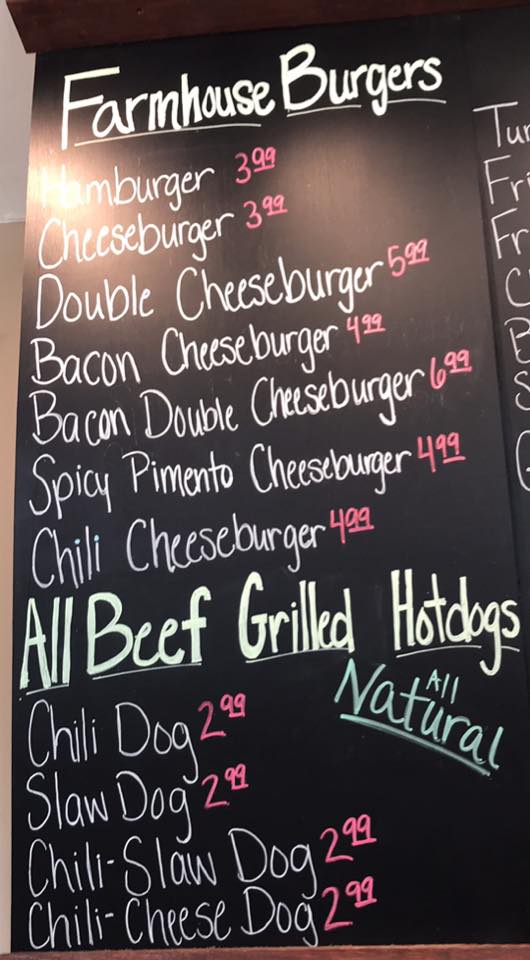 Farmhouse Burgers
Hamburger 3.99
Cheeseburger 3.99
Double Cheeseburger 5.99
Bacon Cheeseburger 4.99
Bacon Double Cheeseburger 6.99
Spicy Pimento Cheeseburger 4.99
Chili Cheeseburger 4.99
All Beef Grilled Hotdogs
All
Natural
Chili Dog 2.99
Slaw Dog 2.99
Chili-Slaw Dog 2.99
Chili-Cheese Dog 2.99